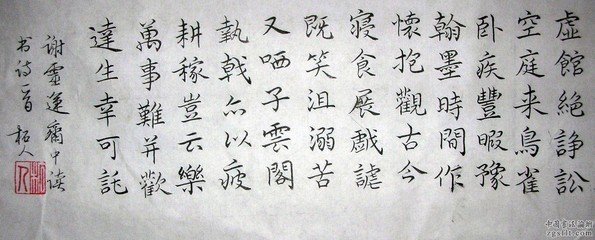 虚館絕諍訟
空庭来鳥雀
卧疾豐暇豫
翰墨時間作
懷抱觀古今
寢食展戲謔
既笑沮溺苦
又哂子雲閣
執戟亦以疲
耕稼豈云樂
萬事難并歡
達生幸可託
谢靈运齋中读
书诗一首 拓人
zgsflt.com